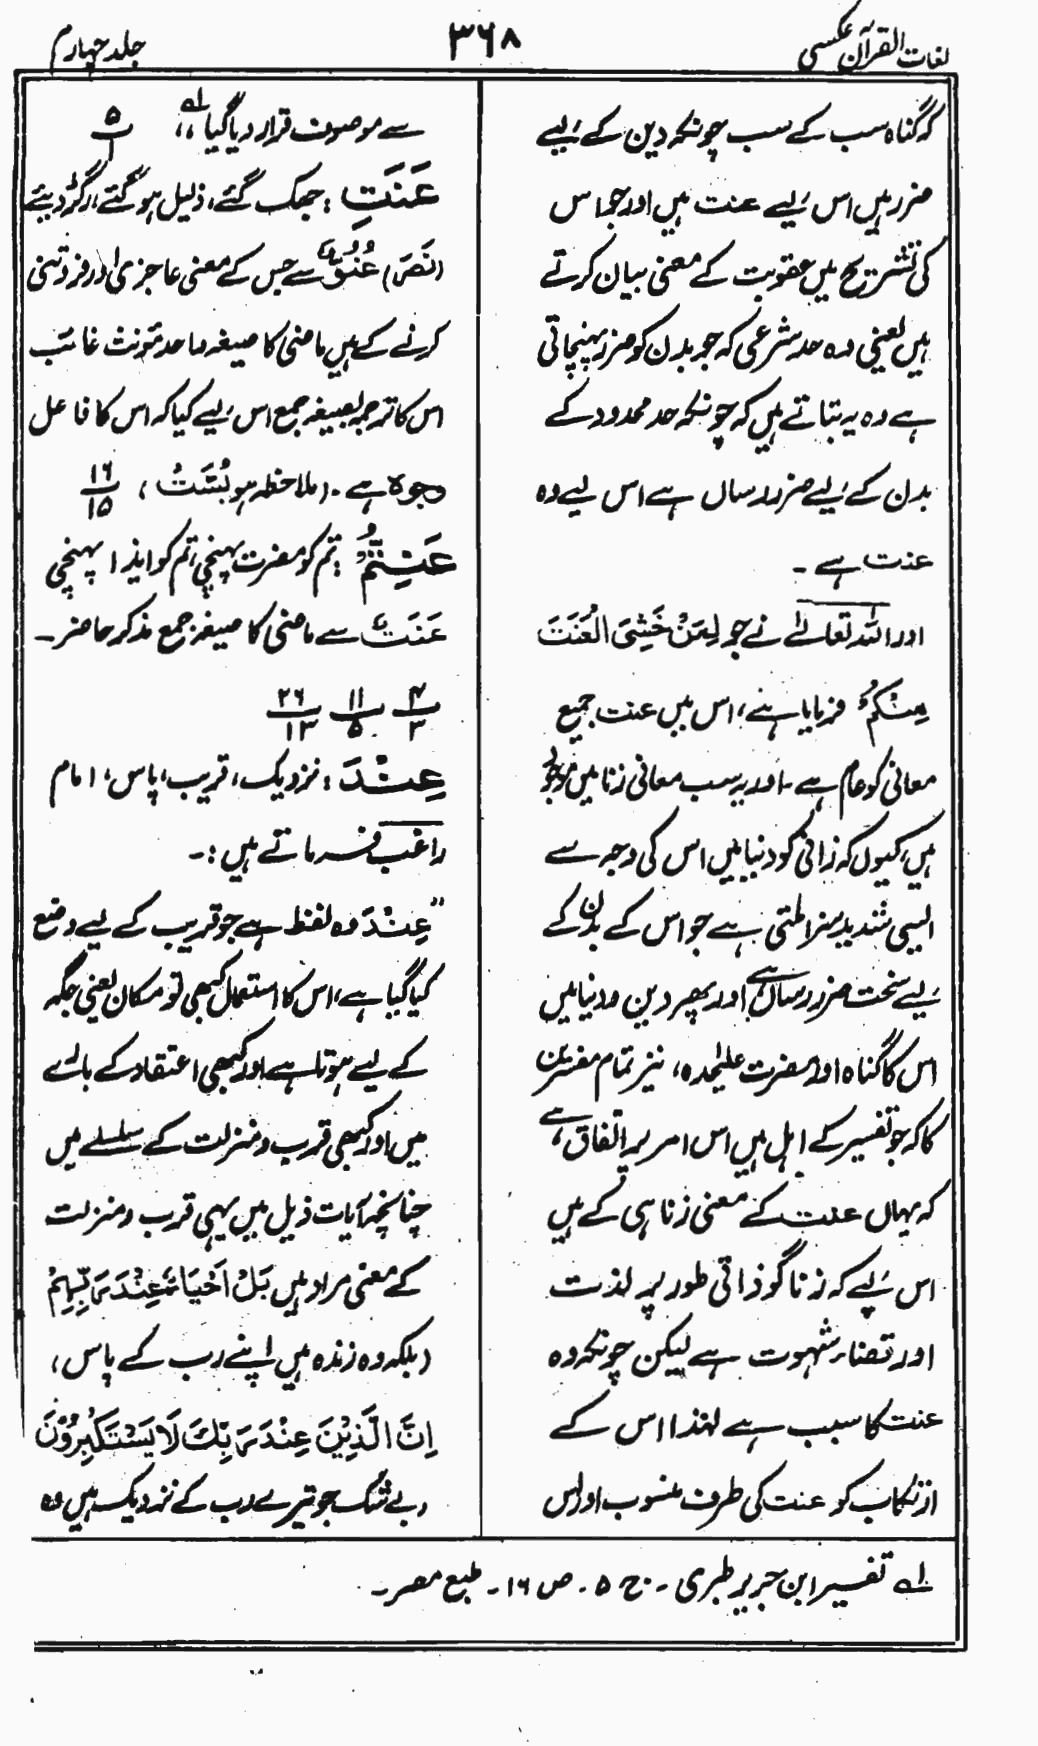 لغات القرآن عکسی
۳۶۸
جلد چہارم
کہ گناہ سب کے سب چونکہ دین کے لیے
ضرر ہیں اس لیے عنت ہیں اور جو اس
کی تشریح میں عقوبت کے معنی بیان کرتے
ہیں یعنی وہ حد شرعی کہ جو بدن کو ضرر پہنچاتی
ہے وہ یہ بتاتے ہیں کہ چونکہ حد محدود کے
بدن کے لیے ضرر رساں ہے اس لیے وہ
عنت ہے ۔
اور اللہ تعالےٰ نے جو لِمَنْ خَشِیَ الْعَنَتَ
مِنْکُمْ فرمایا ہے، اس میں عنت جمیع
معانی کو عام ہے ۔ اور یہ سب معانی زنا میں موجود
ہیں، کیوں کہ زانی کو دنیا میں اس کی وجہ سے
ایسی شدید سزا ملتی ہے جو اس کے بدن کے
لیے سخت ضرر رساں ہے اور پھر دین و دنیا میں
اس کا گناہ اور مضرت علیٰحدہ، نیز تمام مفسرین
کا کہ جو تفسیر کے اہل ہیں اس امر پر اتفاق ہے،
کہ یہاں عنت کے معنی زنا ہی کے ہیں
اس لیے کہ زنا گو ذاتی طور پر لذت
اور قضاء شہوت ہے لیکن چونکہ وہ
عنت کا سبب ہے لہٰذا اس کے
ارتکاب کو عنت کی طرف منسوب اور اس
سے موصوف قرار دیا گیا ،، لہ ۵/۱
عَنَتِ : جھک گئے، ذلیل ہو گئے، رگڑ دیئے
(نَصَرَ) عُنُوٌّ سے جس کے معنی عاجزی اور فروتنی
کرنے کے ہیں ماضی کا صیغہ واحد مؤنث غائب
اس کا ترجمہ بصیغہ جمع اس لیے کیا کہ اس کا فاعل
وجوہ ہے ۔ (ملاحظہ ہو بُسَّتْ) ۱۶/۱۵
عَنِتُّمْ : تم کو مضرت پہنچی، تم کو ایذا پہنچی
عَنَتٌ سے ماضی کا صیغہ جمع مذکر حاضر ۔
۴/۳ ۱۱/۵ ۲۶/۱۳
عِنْدَ : نزدیک، قریب، پاس، امام
راغب فرماتے ہیں :۔
”عِنْدَ وہ لفظ ہے جو قریب کے لیے وضع
کیا گیا ہے، اس کا استعمال کبھی تو مکان یعنی جگہ
کے لیے ہوتا ہے اور کبھی اعتقاد کے بارے
میں اور کبھی قرب و منزلت کے سلسلے میں
چنانچہ آیات ذیل میں یہی قرب و منزلت
کے معنی مراد ہیں بَلْ اَحْیَاءٌ عِنْدَ رَبِّهِمْ
(بلکہ وہ زندہ ہیں اپنے رب کے پاس)
اِنَّ الَّذِیْنَ عِنْدَ رَبِّكَ لَا یَسْتَکْبِرُوْنَ
(بے شک جو تیرے رب کے نزدیک ہیں وہ
لہ تفسیر ابن جریر طبری ۔ ج ۵ ۔ ص ۱۶ ۔ طبع مصر ۔